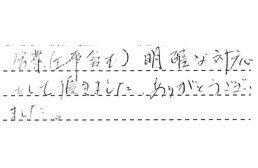 営業(工務含む)明確な対応
をして頂きました。ありがとうござい
ました。